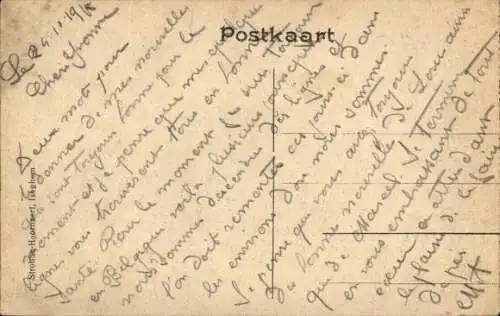 Postkaart
Le 24.11.1915
Cher Yvonne
Deux mot pour
te donner de mes nouvelles
qui sont toujour bonne pour le
moment et je pense que mes quelque
lignes vous trouveront tous en bonne
santé. Pour le moment je suis toujour
en Belgique voila plusieurs jour que
nous sommes descendus des lignes et
l'on doit remonter ces jours ci dans
les environ d'ou nous sommes.
Je pense que vous avez toujour
de bonne nouvelle de Louis ainsi
que de Marcel. Je termine
en vous embrassant de tout
cœur en attendant
le plaisir de
Strobbe-Hoornaert, Iseghem